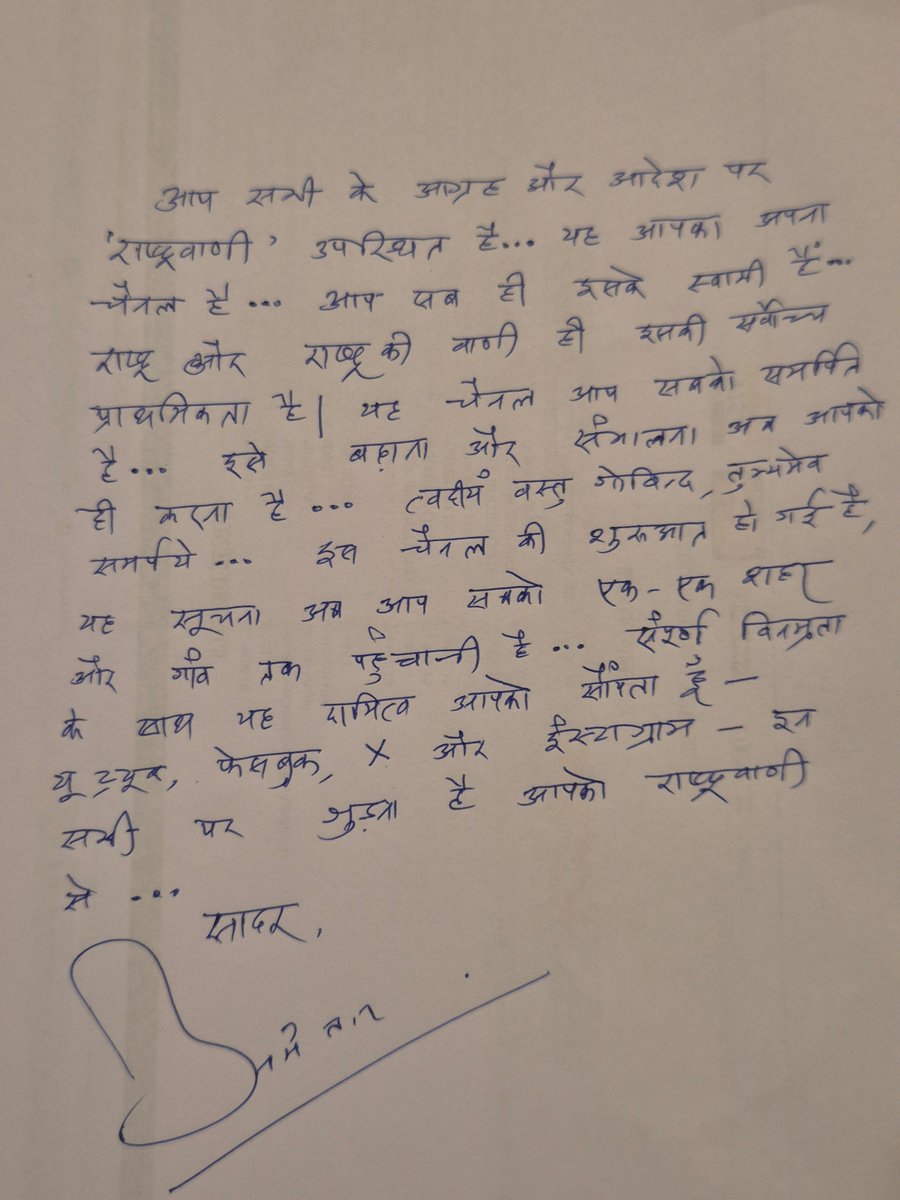 आप सभी के आग्रह और आदेश पर
'राष्ट्रवाणी' उपस्थित है... यह आपका अपना
चैनल है... आप सब ही इसके स्वामी हैं...
राष्ट्र और राष्ट्र की वाणी ही इसकी सर्वोच्च
प्राथमिकता है| यह चैनल आप सबको समर्पित
है... इसे बढ़ाना और संभालना अब आपको
ही करना है... त्वदीयं वस्तु गोविन्द, तुभ्यमेव
समर्पये... इस चैनल की शुरूआत हो गई है,
यह सूचना अब आप सबको एक-एक शहर
और गाँव तक पहुंचानी है... संपूर्ण विनम्रता
के साथ यह दायित्व आपको सौंपता हूँ -
यू ट्यूब, फेसबुक, X और इंस्टाग्राम - इन
सभी पर जुड़ना है आपको राष्ट्रवाणी
से ...
सादर,